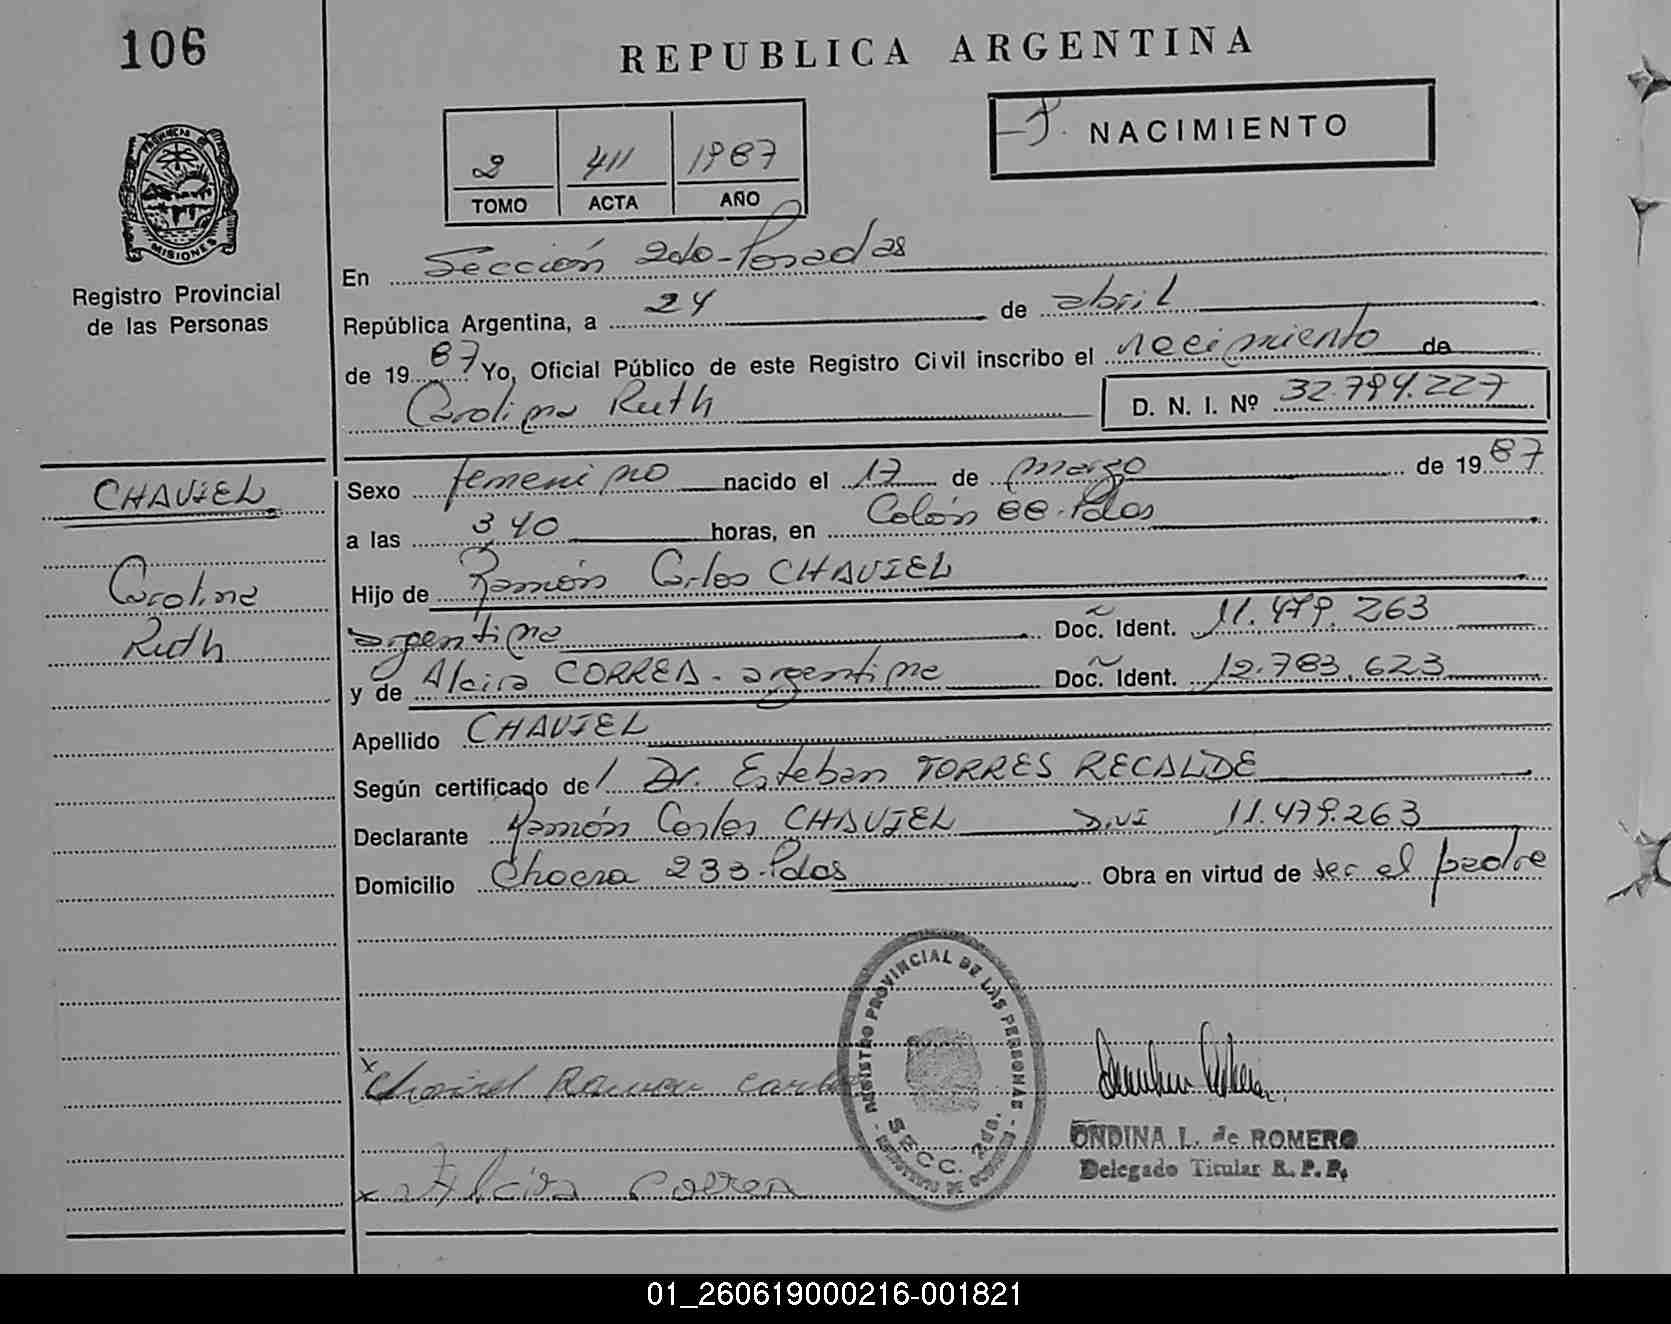 106
REPUBLICA ARGENTINA
2 411 1987
TOMO ACTA AÑO
NACIMIENTO
PROVINCIA DE
MISIONES
Registro Provincial
de las Personas
En Sección 2do-Posadas
República Argentina, a 24 de abril
de 1987 Yo, Oficial Público de este Registro Civil inscribo el nacimiento de
Carolina Ruth D. N. I. Nº 32.794.227
CHAVIEL
Carolina
Ruth
Sexo femenino nacido el 17 de marzo de 1987
a las 3 40 horas, en Colón Pdas
Hijo de Ramón Carlos CHAVIEL
argentina Doc. Ident. 11.479.263
y de Alcira CORREA - argentina Doc. Ident. 12.783.623
Apellido CHAVIEL
Según certificado de Dr. Esteban TORRES RECALDE
Declarante Ramón Carlos CHAVIEL DNI 11.479.263
Domicilio 233-Pdas Obra en virtud de ser el padre
REGISTRO PROVINCIAL DE LAS PERSONAS
SECC. 2da.
MINISTERIO DE GOBIERNO
x Chaviel Ramon Carlos
x Alcira Correa
ONDINA L. de ROMERO
Delegado Titular R. P. P.
01_260619000216-001821